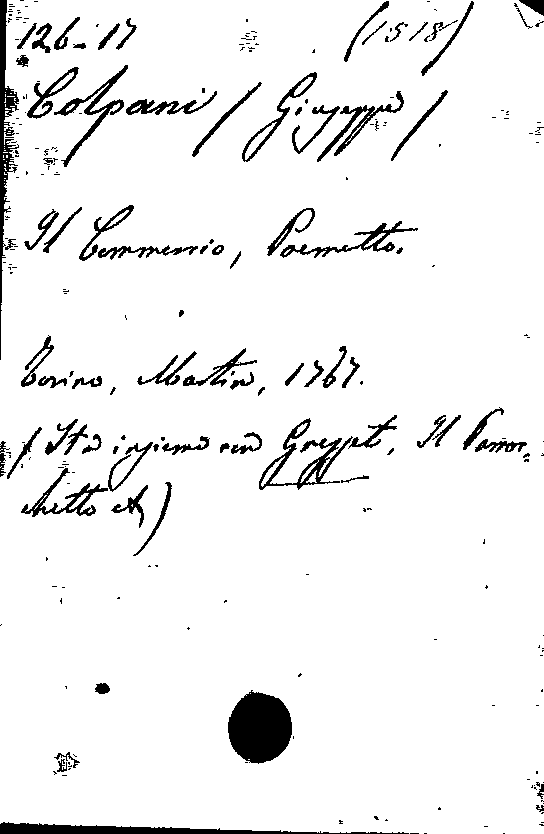 126-17 (1518)
Colpani / Giuseppe /
Il Commercio, Poemetto.
Torino, Martin, 1767.
( Sta insieme con Gresset, Il Parroc-
chetto etc)